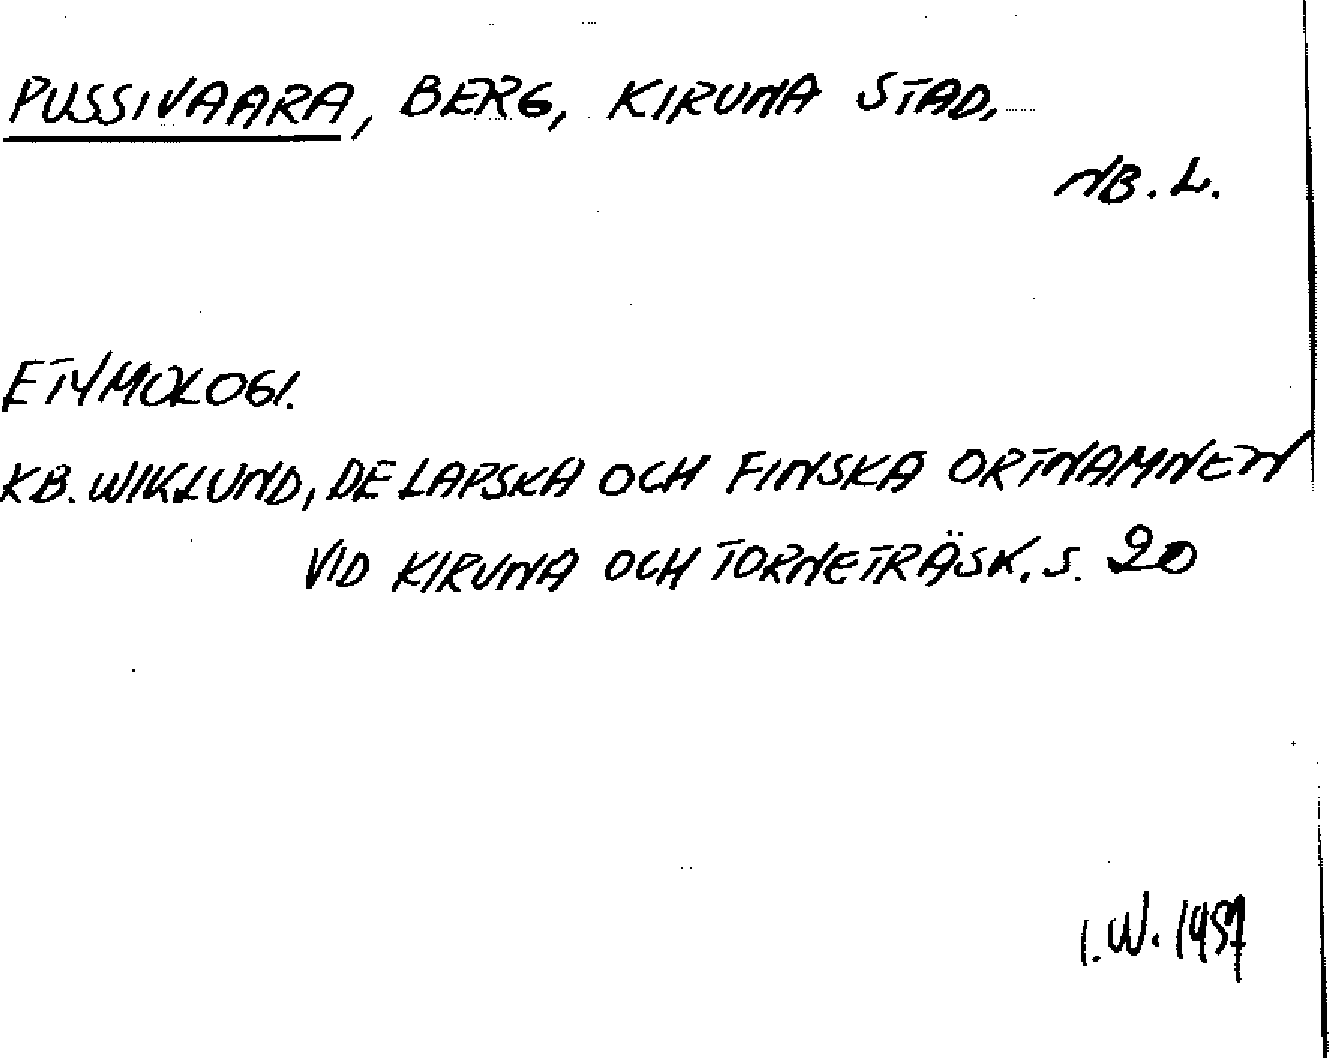 PUSSIVAARA, BERG, KIRUNA STAD,
NB. L.
ETYMOLOGI.
KB. WIKLUND, DE LAPSKA OCH FINSKA ORTNAMNEN
VID KIRUNA OCH TORNETRÄSK. S. 20
I. W. 1957